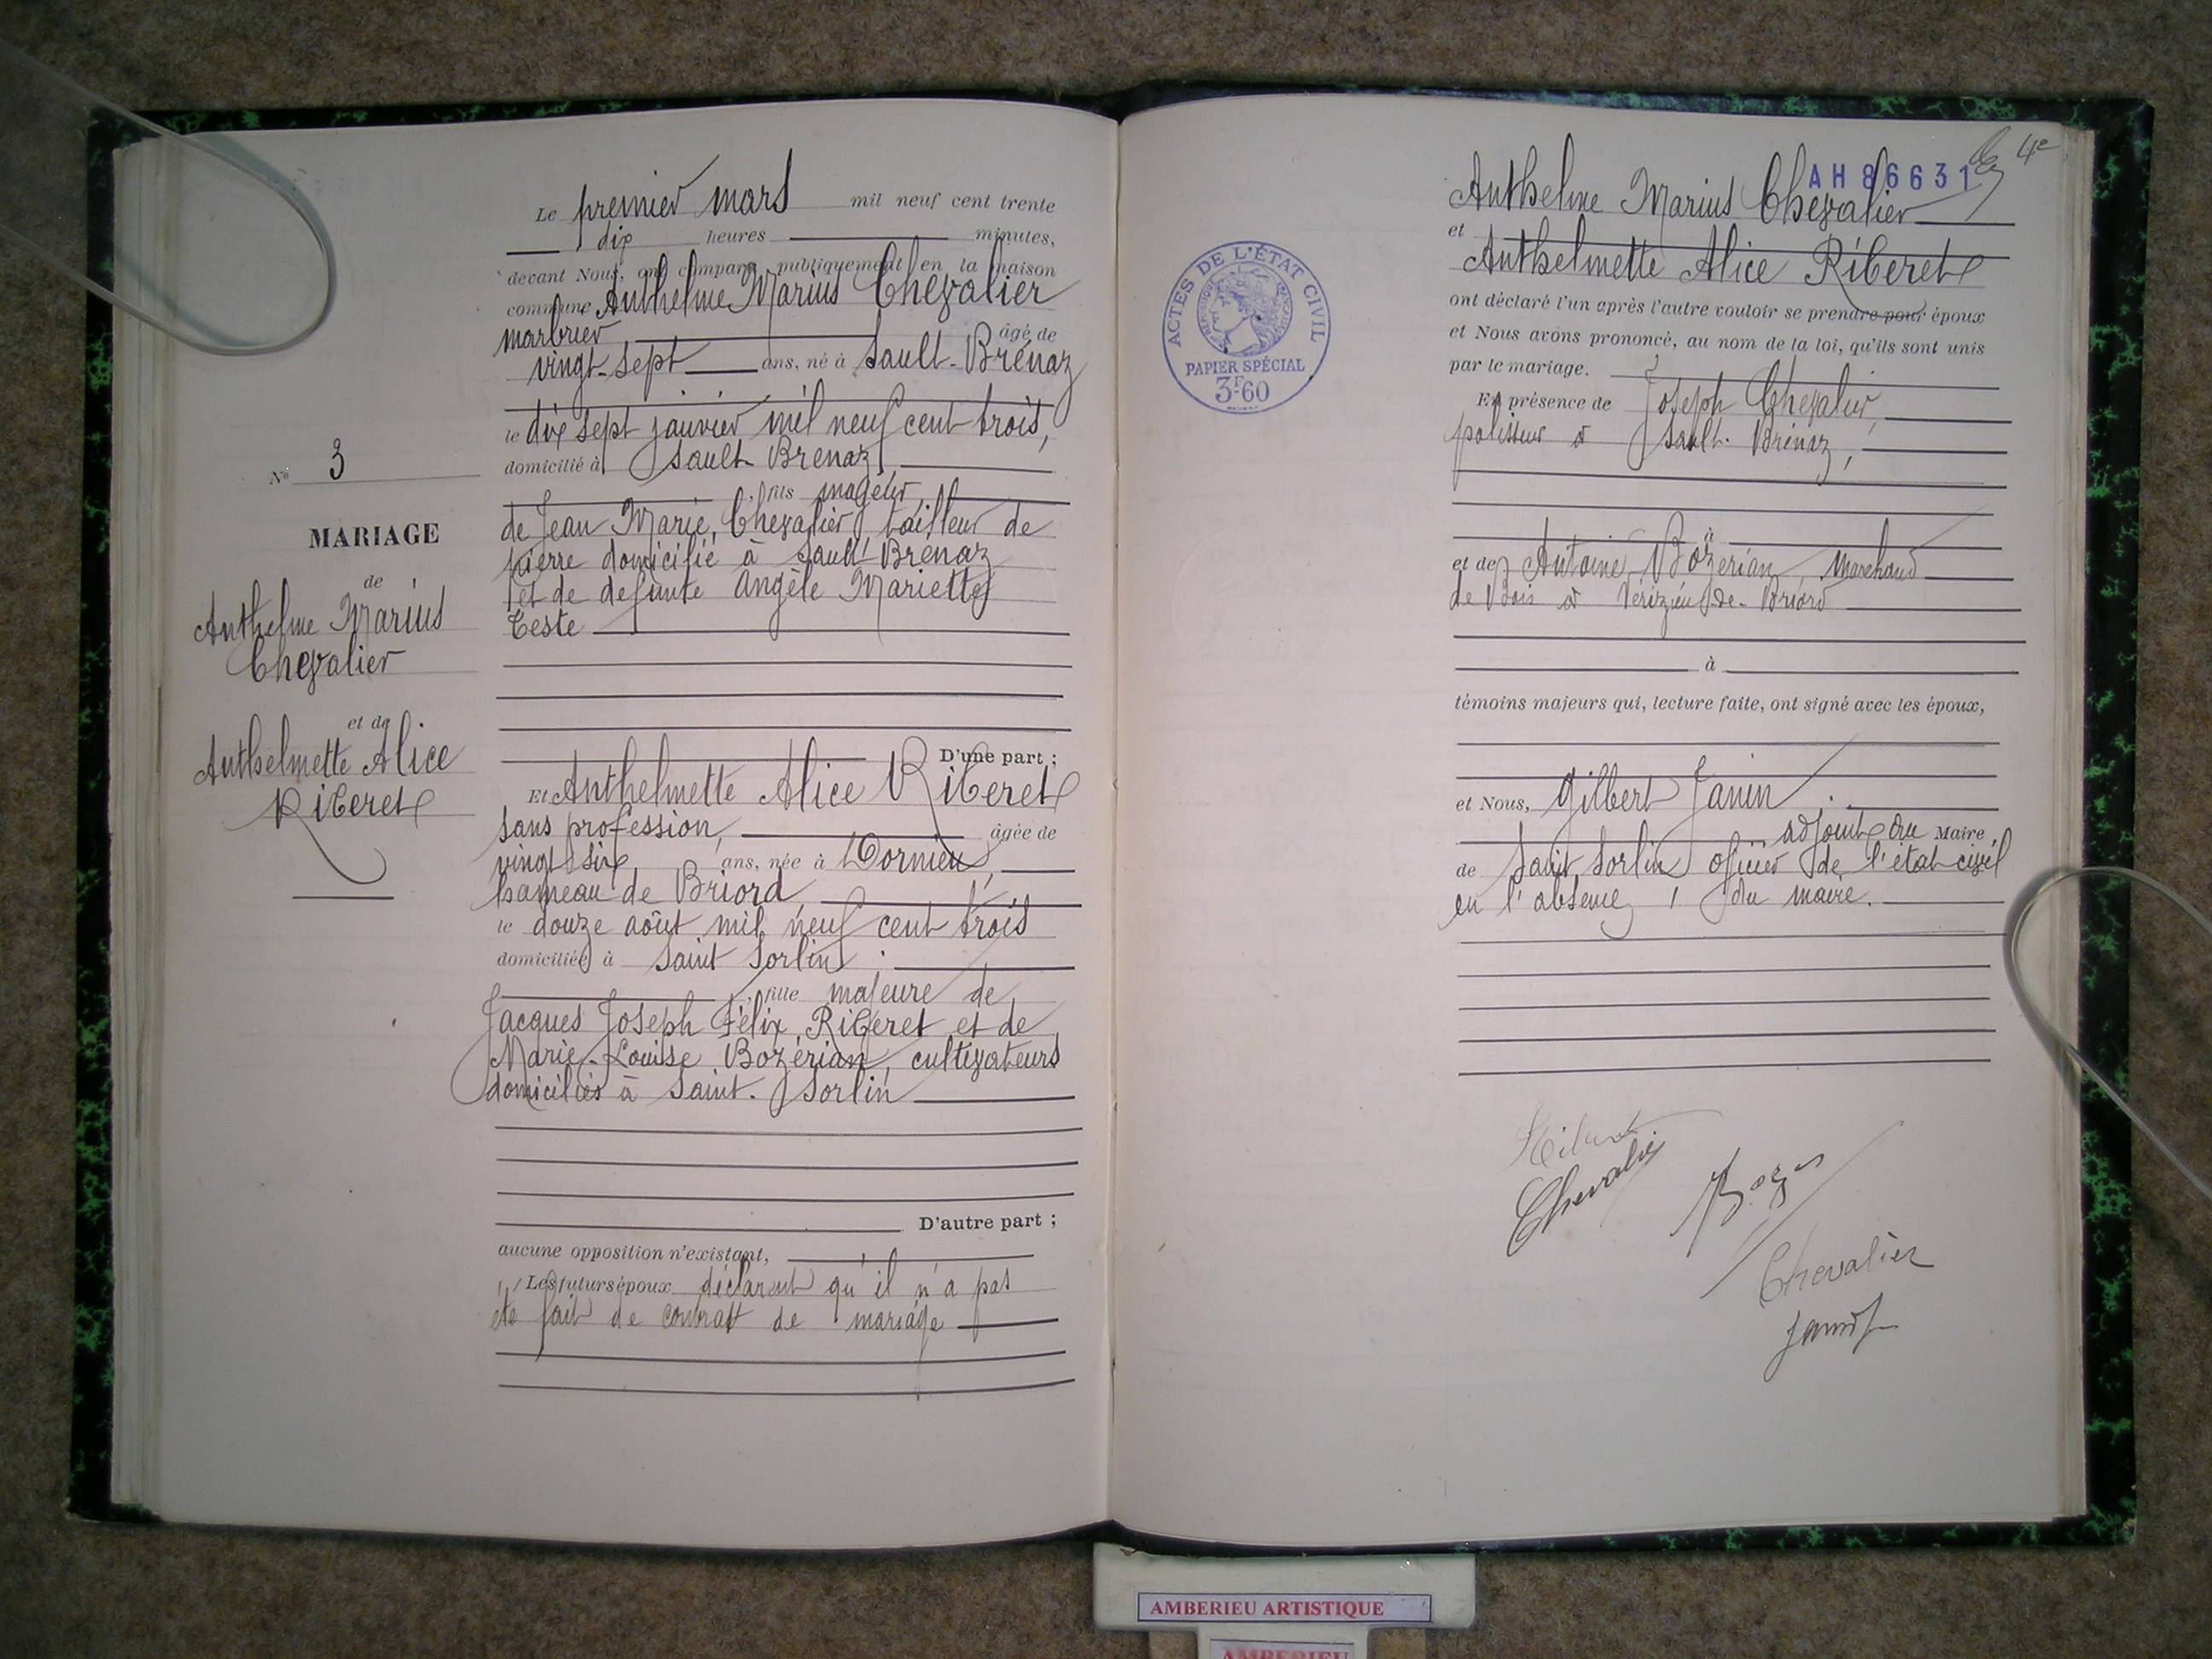 Le premier mars mil neuf cent trente
dix heures minutes,
devant Nous, ont comparu publiquement en la maison
commune Anthelme Marius Chevalier
marbrier âgé de
vingt-sept ans, né à Sault-Brénaz
le dix sept janvier mil neuf cent trois,
domicilié à Sault Brénaz,
, fils mageur
de Jean Marie, Chevalier, tailleur de
pierre domicilié à Sault Brénaz
et de defunte Angèle Mariette
Teste
D'une part ;
Et Anthelmette Alice Riberet
sans profession, âgée de
vingt six ans, née à Dornieu,
hameau de Briord,
le douze août mil neuf cent trois
domiciliée à Saint Sorlin
, fille majeure de
Jacques Joseph Félix, Riberet et de
Marie-Louise Bozérian, cultivateurs
domiciliés à Saint-Sorlin
D'autre part ;
aucune opposition n'existant,
Les futurs époux déclarent qu'il n'a pas
été fait de contrat de mariage
N° 3
MARIAGE
de
Anthelme Marius
Chevalier
et de
Anthelmette Alice
Riberet
4e
AH 86631
Anthelme Marius Chevalier
et
Anthelmette Alice Riberet
ont déclaré l'un après l'autre vouloir se prendre pour époux
et Nous avons prononcé, au nom de la loi, qu'ils sont unis
par le mariage.
En présence de Joseph Chevalier,
polisseur à Sault-Brénaz,
et de Antoine Bozerian Marchand
de Bois à Verizieu-de-Briord
à
témoins majeurs qui, lecture faite, ont signé avec les époux,
et Nous, Gilbert Janin
adjoint au Maire
de Saint Sorlin officier de l'état civil
en l'absence du maire.
Chevalier
Chevalier
ACTES DE L'ÉTAT CIVIL
RÉPUBLIQUE FRANÇAISE
PAPIER SPÉCIAL
3F60
AMBERIEU ARTISTIQUE
AMBERIEU